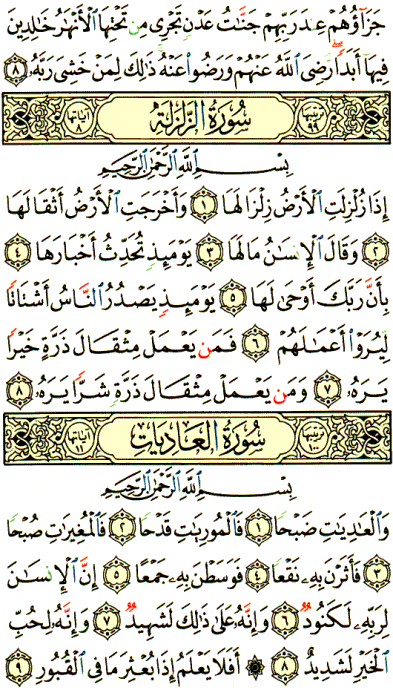 جَزَآؤُهُمْ عِندَ رَبِّهِمْ جَنَّٰتُ عَدْنٍ تَجْرِى مِن تَحْتِهَا ٱلْأَنْهَٰرُ خَٰلِدِينَ
فِيهَآ أَبَدًا ۖ رَّضِىَ ٱللَّهُ عَنْهُمْ وَرَضُوا۟ عَنْهُ ۚ ذَٰلِكَ لِمَنْ خَشِىَ رَبَّهُۥ ٨
ترتيبها ٩٩ سُورَةُ الزَّلْزَلَةِ آياتها ٨
بِسْمِ ٱللَّهِ ٱلرَّحْمَٰنِ ٱلرَّحِيمِ
إِذَا زُلْزِلَتِ ٱلْأَرْضُ زِلْزَالَهَا ١ وَأَخْرَجَتِ ٱلْأَرْضُ أَثْقَالَهَا
٢ وَقَالَ ٱلْإِنسَٰنُ مَا لَهَا ٣ يَوْمَئِذٍ تُحَدِّثُ أَخْبَارَهَا ٤
بِأَنَّ رَبَّكَ أَوْحَىٰ لَهَا ٥ يَوْمَئِذٍ يَصْدُرُ ٱلنَّاسُ أَشْتَاتًا
لِّيُرَوْا۟ أَعْمَٰلَهُمْ ٦ فَمَن يَعْمَلْ مِثْقَالَ ذَرَّةٍ خَيْرًا
يَرَهُۥ ٧ وَمَن يَعْمَلْ مِثْقَالَ ذَرَّةٍ شَرًّا يَرَهُۥ ٨
ترتيبها ١٠٠ سُورَةُ العَادِيَاتِ آياتها ١١
بِسْمِ ٱللَّهِ ٱلرَّحْمَٰنِ ٱلرَّحِيمِ
وَٱلْعَٰدِيَٰتِ ضَبْحًا ١ فَٱلْمُورِيَٰتِ قَدْحًا ٢ فَٱلْمُغِيرَٰتِ صُبْحًا
٣ فَأَثَرْنَ بِهِۦ نَقْعًا ٤ فَوَسَطْنَ بِهِۦ جَمْعًا ٥ إِنَّ ٱلْإِنسَٰنَ
لِرَبِّهِۦ لَكَنُودٌ ٦ وَإِنَّهُۥ عَلَىٰ ذَٰلِكَ لَشَهِيدٌ ٧ وَإِنَّهُۥ لِحُبِّ
ٱلْخَيْرِ لَشَدِيدٌ ٨ ۞ أَفَلَا يَعْلَمُ إِذَا بُعْثِرَ مَا فِى ٱلْقُبُورِ ٩